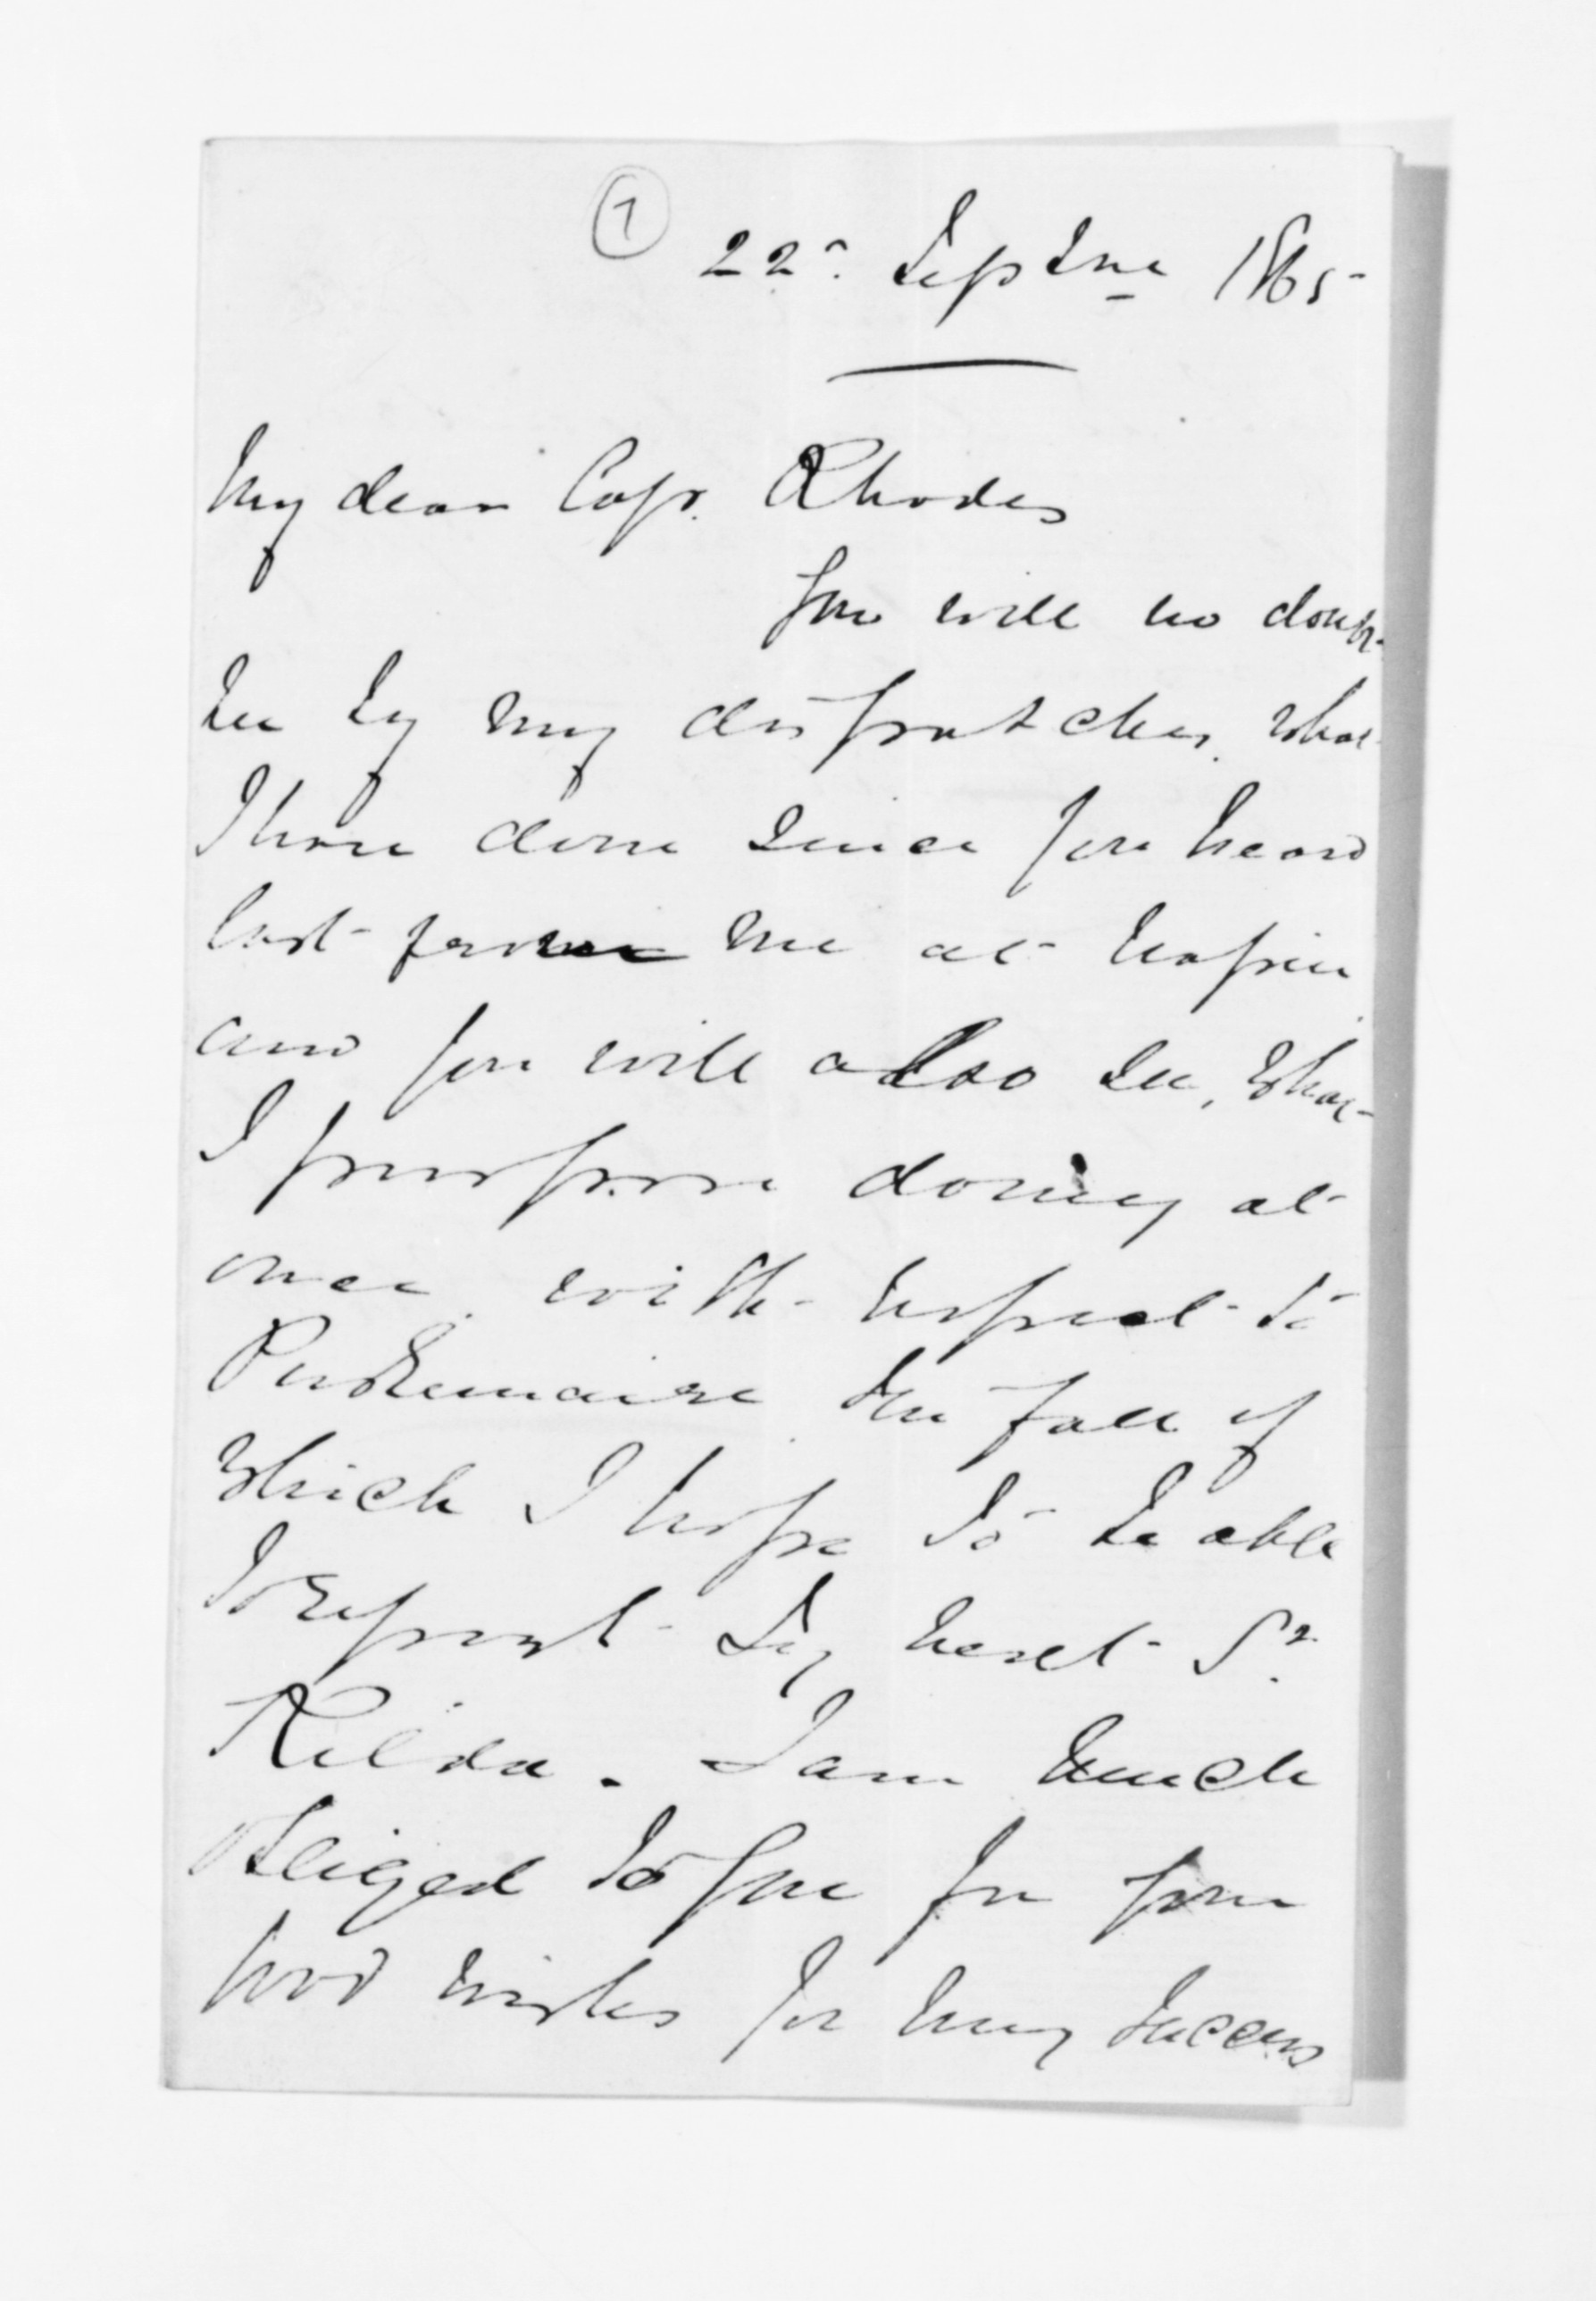 1
22d. Septbr 1865
My dear Capt. Rhodes
You will no doubt
see by my despatches, what
I have done since you heard
last from me at Napier
and you will also see, what
I purpose doing at
once, with respect to
Pukemaire, the fall of
which I hope to be able
to report by next St.
Kilda. I am much
obliged to you for your
good wishes for my success